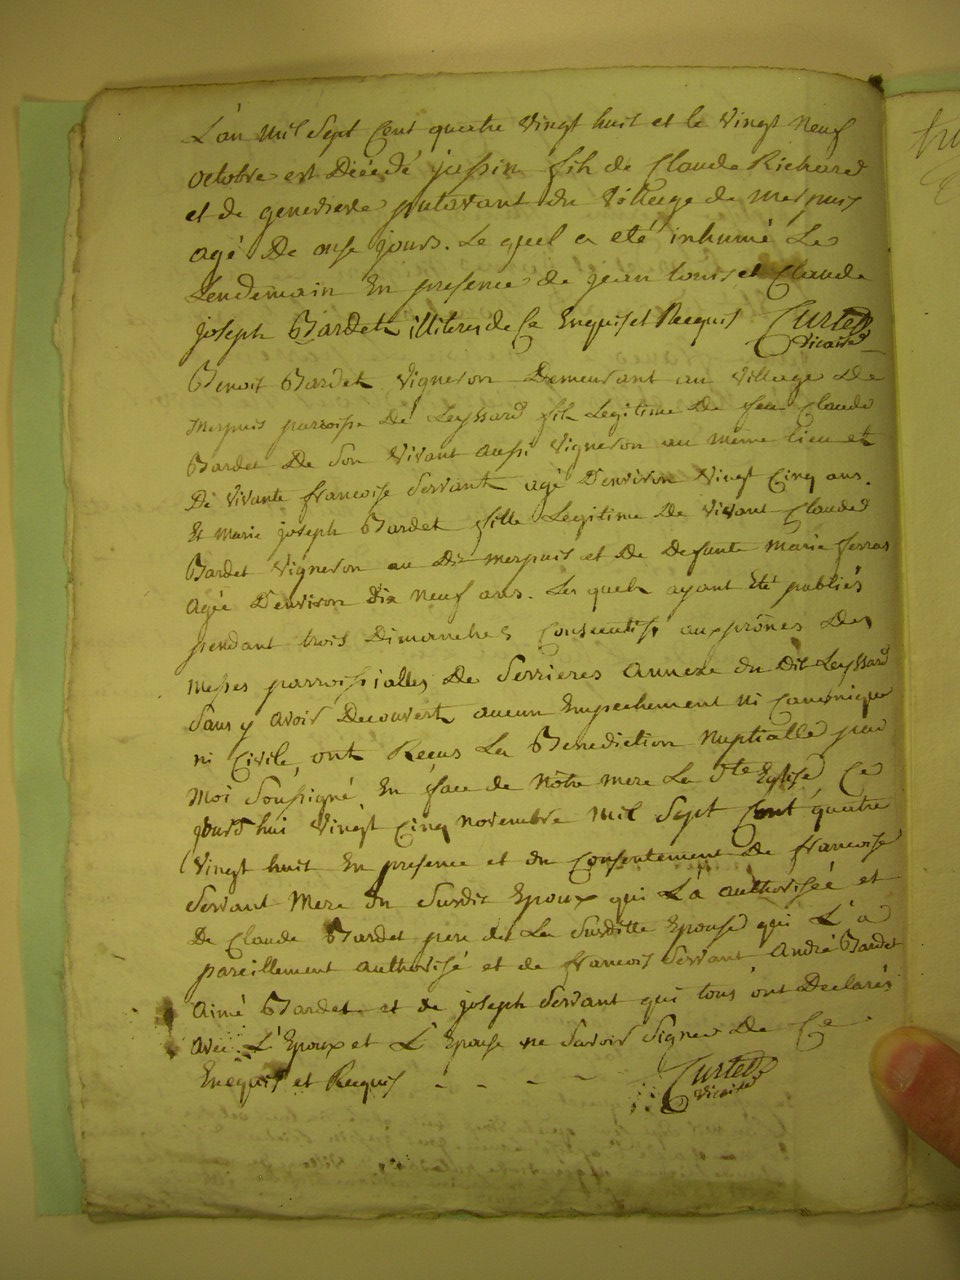 L'an mil sept Cent quatre vingt huit et le vingt neuf
octobre est Décédé jussin fils de Claude Richard
et de genevieve putavant du village de merpuis
agé De onse jours. Le quel a eté inhumé Le
Lendemain En presence de jean louis et Claude
joseph Bardet illiterés de Ce Enquis et Requis Curtet
vicaire
Benoit Bardet vigneron Demeurant au village De
merpuis parroisse De Leyssard fils Legitime De feu Claude
Bardet De Son vivant aussi vigneron au même lieu et
De vivante francoise Servant agé D'environ vingt Cinq ans.
Et marie joseph Bardet fille Legitime De vivant Claude
Bardet vigneron au Dit merpuis et De Defunte marie ferras
agée D'environ Dix neuf ans. Les quels ayant été publiés
pendant trois Dimanches Consecutifs aux prônes Des
messes parroissialles De Serrieres annexe du Dit Leyssard
Sans y avoir Decouvert aucun Empechement ni Canonique
ni Civile, ont Recus La Benediction nuptialle par
moi Soussigné En face de nôtre mere La Ste Eglise Ce
jourd'hui vingt Cinq novembre mil Sept Cent quatre
vingt huit En presence et du Consentement De francoise
Servant mere du Susdit Epoux qui L'a authorisée et
De Claude Bardet pere de La Susditte Epouse qui L'a
pareillement authorisé et de francois Servant André Bardet
Aimé Bardet et de joseph Servant qui tous ont Declarés
avec L'Epoux et L'Epouse ne Savoir Signer De Ce
Enequis et Requis - - - - Curtet
vicaire